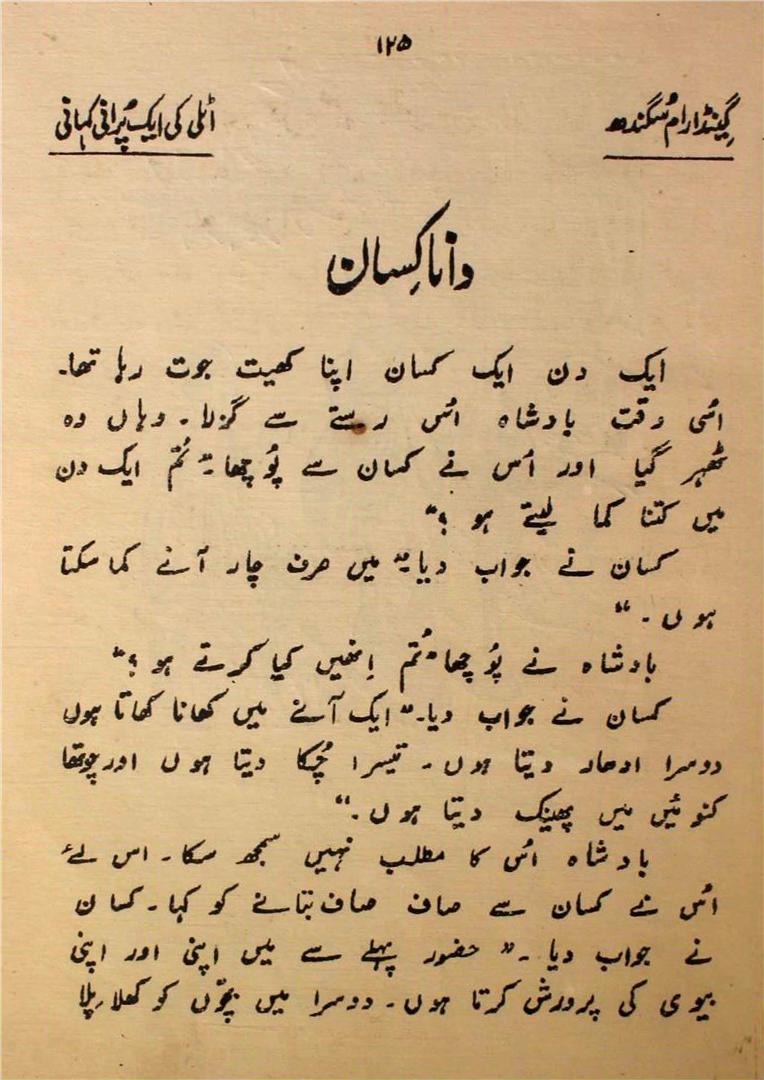 ۱۲۵
گینڈا رام سُگندھ
اٹلی کی ایک پُرانی کہانی
دانا کِسان
ایک دن ایک کسان اپنا کھیت جوت رہا تھا۔
اُسی وقت بادشاہ اُس رستے سے گزرا۔ وہاں وہ
ٹھہر گیا اور اُس نے کسان سے پُوچھا۔ "تُم ایک دن
میں کتنا کما لیتے ہو ؟"
کسان نے جواب دیا۔ "میں صرف چار آنے کما سکتا
ہوں۔"
بادشاہ نے پُوچھا "تُم اِنھیں کیا کرتے ہو ؟"
کسان نے جواب دیا۔ "ایک آنے میں کھانا کھاتا ہوں
دوسرا ادھار دیتا ہوں۔ تیسرا چُکا دیتا ہوں اور چوتھا
کنوئیں میں پھینک دیتا ہوں۔"
بادشاہ اُس کا مطلب نہیں سمجھ سکا۔ اس لئے
اُس نے کسان سے صاف صاف بتانے کو کہا۔ کسان
نے جواب دیا۔ "حضور پہلے سے میں اپنی اور اپنی
بیوی کی پرورش کرتا ہوں۔ دوسرا میں بچّوں کو کھلا پِلا